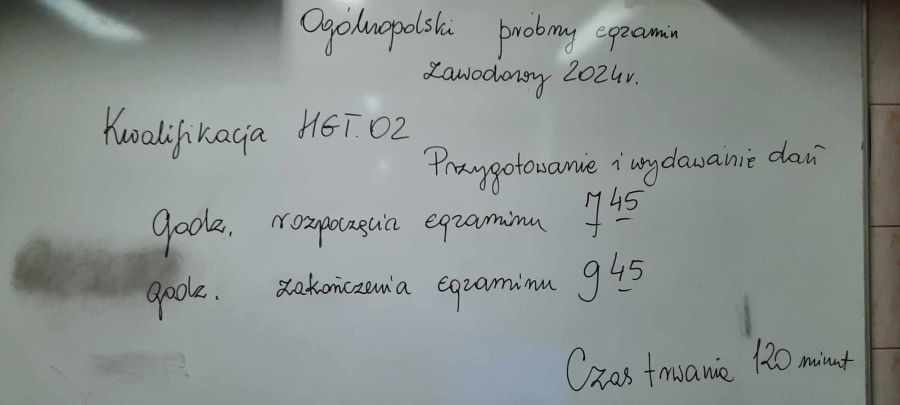 Ogólnopolski próbny egzamin
zawodowy 2024r.
Kwalifikacja HGT.02
Przygotowanie i wydawanie dań
Godz. rozpoczęcia egzaminu 7 45
godz. zakończenia egzaminu 9 45
Czas trwania 120 minut